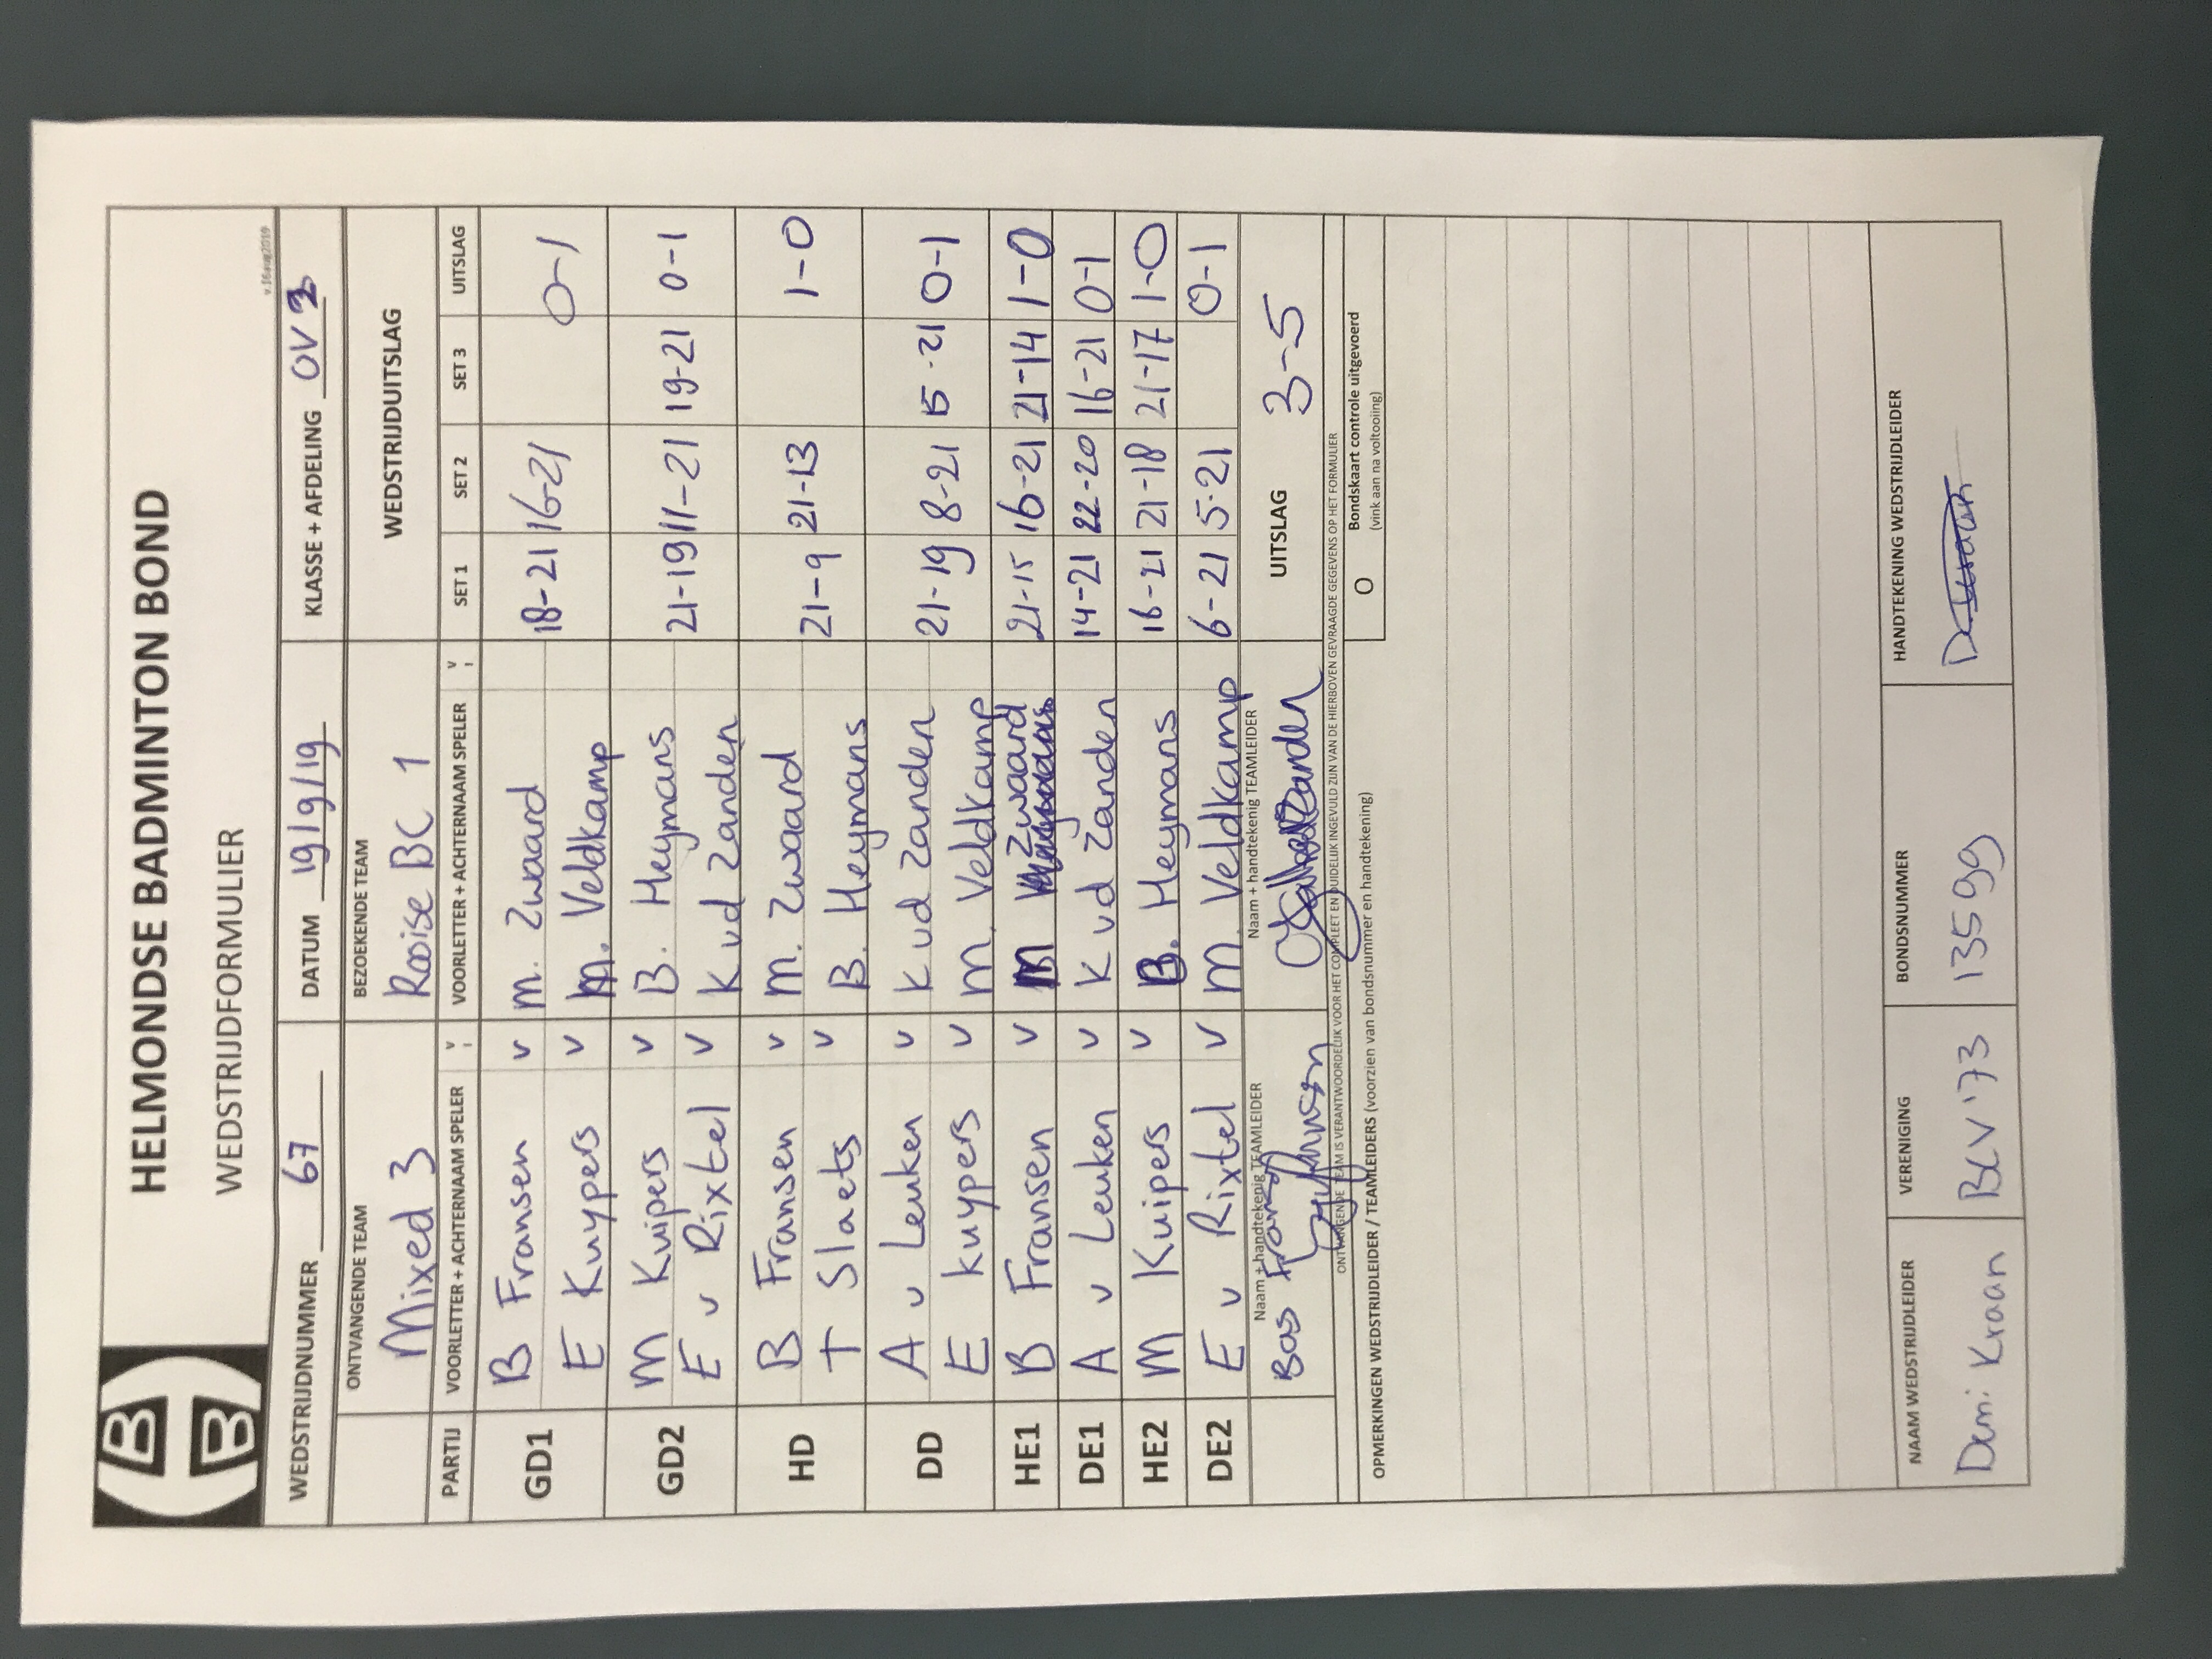 HELMONDSE BADMINTON BOND
WEDSTRIJDFORMULIER
v.16aug2019
WEDSTRIJDNUMMER 67 DATUM 19/9/19 KLASSE + AFDELING OV 3
ONTVANGENDE TEAM BEZOEKENDE TEAM WEDSTRIJDUITSLAG
Mixed 3 Rooise BC 1
PARTIJ VOORLETTER + ACHTERNAAM SPELER V VOORLETTER + ACHTERNAAM SPELER V SET 1 SET 2 SET 3 UITSLAG
GD1 B Fransen v M. Zwaard 18-21 16-21 0-1
E Kuypers v M. Veldkamp
GD2 M Kuipers v B. Heymans 21-19 11-21 19-21 0-1
E v Rixtel v K vd Zanden
HD B Fransen v M. Zwaard 21-9 21-13 1-0
T Slaets v B. Heymans
DD A v Leuken v K vd Zanden 21-19 8-21 15-21 0-1
E kuypers v M. Veldkamp
HE1 B Fransen v M Zwaard 21-15 16-21 21-14 1-0
DE1 A v Leuken v K vd Zanden 14-21 22-20 16-21 0-1
HE2 M Kuipers v B. Heymans 16-21 21-18 21-17 1-0
DE2 E v Rixtel v M. Veldkamp 6-21 5-21 0-1
Naam + handtekenig TEAMLEIDER Naam + handtekenig TEAMLEIDER
Bas Fransen UITSLAG 3-5
ONTVANGENDE TEAM IS VERANTWOORDELIJK VOOR HET COMPLEET EN DUIDELIJK INGEVULD ZIJN VAN DE HIERBOVEN GEVRAAGDE GEGEVENS OP HET FORMULIER
OPMERKINGEN WEDSTRIJDLEIDER / TEAMLEIDERS (voorzien van bondsnummer en handtekening)
O Bondskaart controle uitgevoerd
(vink aan na voltooiing)
NAAM WEDSTRIJDLEIDER VERENIGING BONDSNUMMER HANDTEKENING WEDSTRIJDLEIDER
Demi Kraan BCV '73 13599